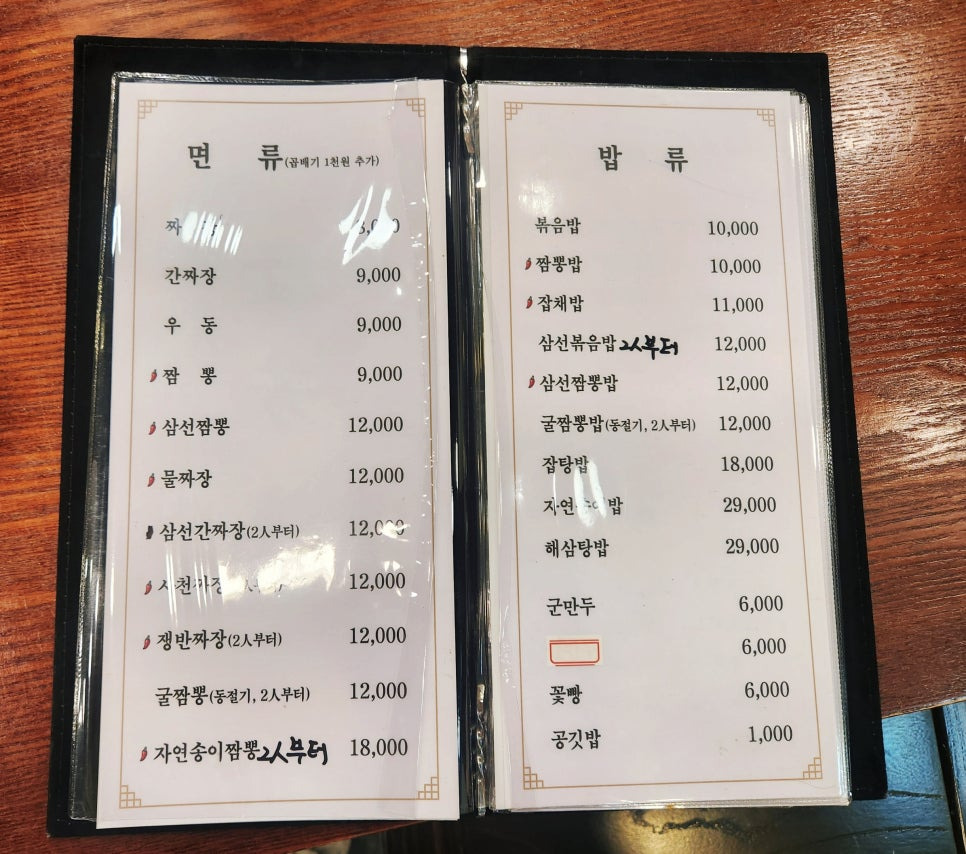 면 류(곱배기 1천원 추가)
간짜장 9,000
우 동 9,000
짬 뽕 9,000
삼선짬뽕 12,000
물짜장 12,000
삼선간짜장(2人부터) 12,000
사천짜장 12,000
쟁반짜장(2人부터) 12,000
굴짬뽕(동절기, 2人부터) 12,000
자연송이짬뽕 2人부터 18,000
밥 류
볶음밥 10,000
짬뽕밥 10,000
잡채밥 11,000
삼선볶음밥 2人부터 12,000
삼선짬뽕밥 12,000
굴짬뽕밥(동절기, 2人부터) 12,000
잡탕밥 18,000
자연송이밥 29,000
해삼탕밥 29,000
군만두 6,000
6,000
꽃빵 6,000
공깃밥 1,000